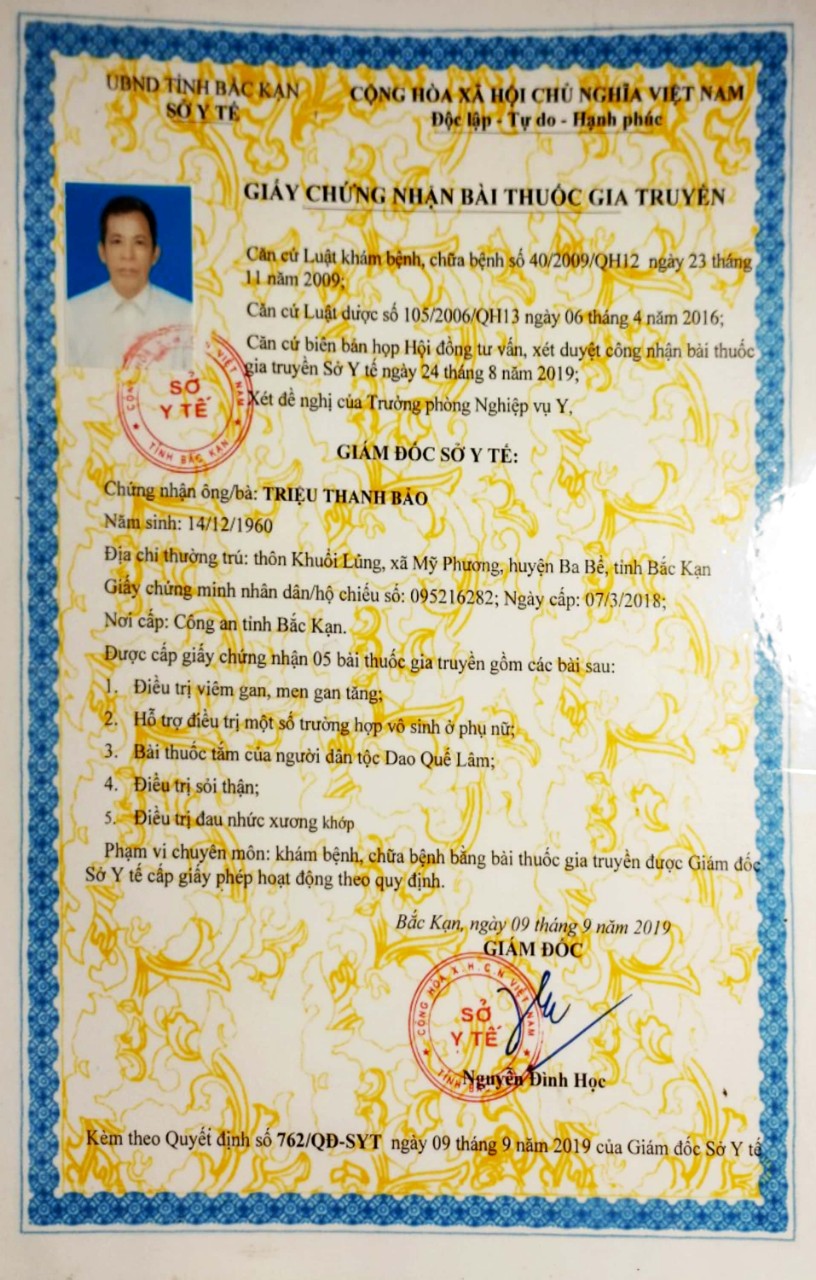 UBND TỈNH BẮC KẠN
SỞ Y TẾ
CỘNG HÒA XÃ HỘI CHỦ NGHĨA VIỆT NAM
Độc lập - Tự do - Hạnh phúc
GIẤY CHỨNG NHẬN BÀI THUỐC GIA TRUYỀN
Căn cứ Luật khám bệnh, chữa bệnh số 40/2009/QH12 ngày 23 tháng
11 năm 2009;
Căn cứ Luật dược số 105/2006/QH13 ngày 06 tháng 4 năm 2016;
Căn cứ biên bản họp Hội đồng tư vấn, xét duyệt công nhận bài thuốc
gia truyền Sở Y tế ngày 24 tháng 8 năm 2019;
Xét đề nghị của Trưởng phòng Nghiệp vụ Y,
CỘNG HÒA X.H.C.N VIỆT NAM
SỞ
Y TẾ
TỈNH BẮC KẠN
GIÁM ĐỐC SỞ Y TẾ:
Chứng nhận ông/bà: TRIỆU THANH BẢO
Năm sinh: 14/12/1960
Địa chỉ thường trú: thôn Khuổi Lủng, xã Mỹ Phương, huyện Ba Bể, tỉnh Bắc Kạn
Giấy chứng minh nhân dân/hộ chiếu số: 095216282; Ngày cấp: 07/3/2018;
Nơi cấp: Công an tỉnh Bắc Kạn.
Được cấp giấy chứng nhận 05 bài thuốc gia truyền gồm các bài sau:
1. Điều trị viêm gan, men gan tăng;
2. Hỗ trợ điều trị một số trường hợp vô sinh ở phụ nữ;
3. Bài thuốc tắm của người dân tộc Dao Quế Lâm;
4. Điều trị sỏi thận;
5. Điều trị đau nhức xương khớp
Phạm vi chuyên môn: khám bệnh, chữa bệnh bằng bài thuốc gia truyền được Giám đốc
Sở Y tế cấp giấy phép hoạt động theo quy định.
Bắc Kạn, ngày 09 tháng 9 năm 2019
GIÁM ĐỐC
CỘNG HÒA X.H.C.N VIỆT NAM
SỞ
Y TẾ
Nguyễn Đình Học
Kèm theo Quyết định số 762/QĐ-SYT ngày 09 tháng 9 năm 2019 của Giám đốc Sở Y tế